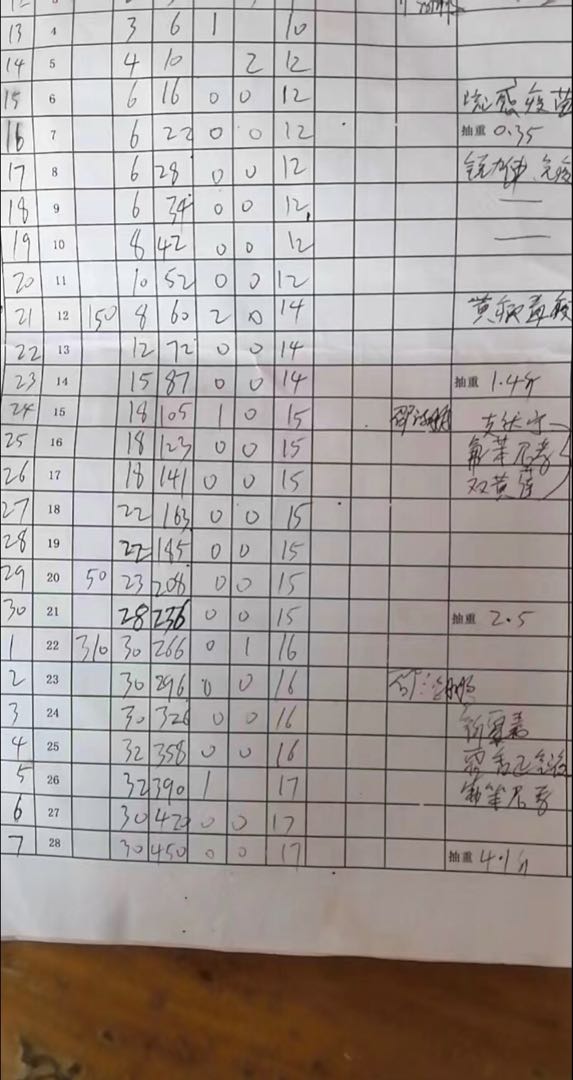 13 4 3 6 1 10
14 5 4 10 2 12
15 6 6 16 0 0 12 疫苗
16 7 6 22 0 0 12 抽重 0.35
17 8 6 28 0 0 12
18 9 6 34 0 0 12 —
19 10 8 42 0 0 12 —
20 11 10 52 0 0 12
21 12 150 8 60 2 0 14
22 13 12 72 0 0 14
23 14 15 87 0 0 14 抽重 1.4斤
24 15 18 105 1 0 15
25 16 18 123 0 0 15 氟苯尼考
26 17 18 141 0 0 15 双黄连
27 18 22 163 0 0 15
28 19 22 185 0 0 15
29 20 50 23 208 0 0 15
30 21 28 236 0 0 15 抽重 2.5
1 22 310 30 266 0 1 16
2 23 30 296 0 0 16
3 24 30 326 0 0 16 新霉素
4 25 32 358 0 0 16 藿香正气
5 26 32 390 1 17 氟苯尼考
6 27 30 420 0 0 17
7 28 30 450 0 0 17 抽重 4.1斤